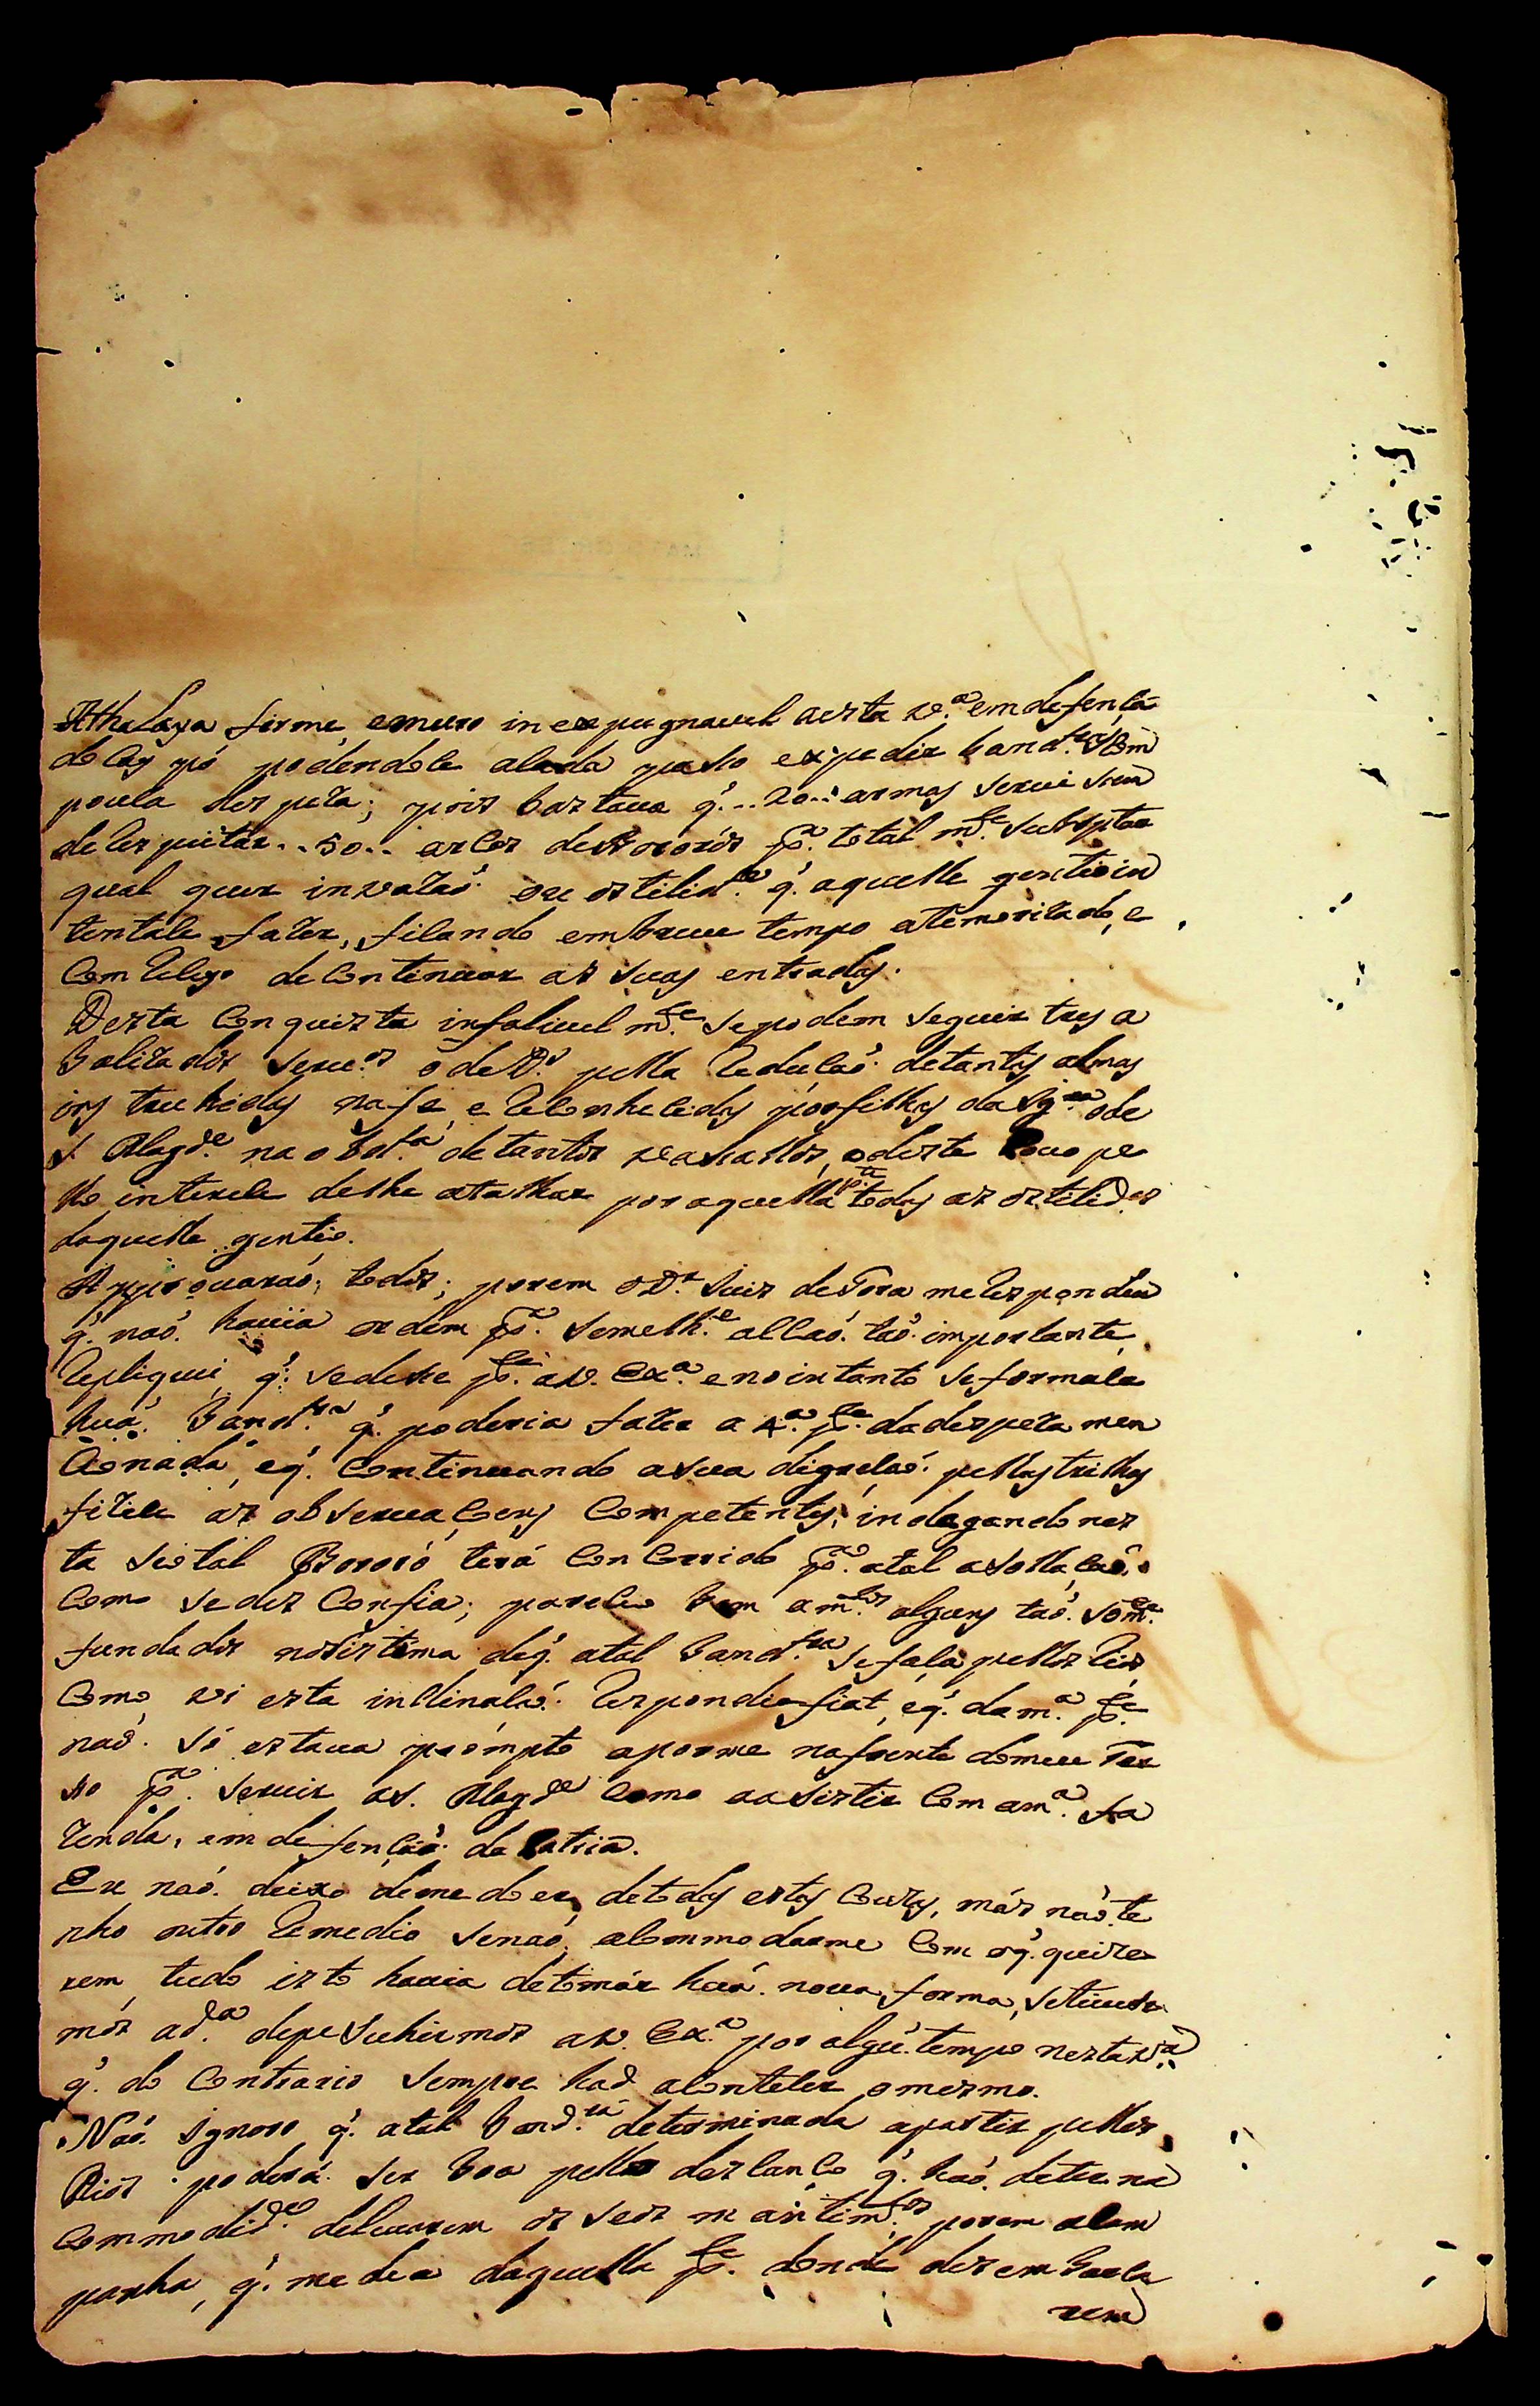 Athalaya firme, emuro inexpugnavel aesta v.ª em defença
do Cay pó podendoce alada passo expedir band.ras Com
pouca despeza; pois bastava q̃... 20... armas servicem
de Respeitar... 50... arcos de Bororós p.ª total m.te Subsptar
qual quer invazaõ ou ostilid.e q̃. aquelle gentio in
tentace fazer, ficando embreve tempo atemorizado, e
Com Receyo de Continuar as suas entradas.
Desta Conquista infalivel m.te Se podem Seguir tres a
balizados Serv.os o de D.s pella Reduçaõ. detantas almas
ins truhidas na fe, e Reconhecidas por filhas da Igr.ª o de
S. Mag.de na obd.ca detantos vassallos, e deste Povo pe
llo interece de lhe atalhar por aquella p.te todas as ostilid.es
daquelle gentio.
Approvaraõ, todos; porem o D.r Juis de Fora me Respondeu
q̃. naõ. havia ordem p.ª Semelh.e acçaõ. taõ. importante,
Repliquei, q̃. Sedesse p.te a V. Ex.ª e no intanto Se formace
huã. Band.ra q̃. poderia fazer a 4.ª p.te da despeza men
Cionada, eq̃. Continuando a Sua digreçaõ. pellas trilhas
fizece as observaçoens Competentes, indagando nes
ta Seotal Bororó terá Concorrido p.ª atal asollaçaõ.
Como Se des Confia; pareceo bem a m.tos alguns taõ. Som.te
fundados nosistema deq̃. atal Band.ra Se faça pellos Rios
Como vi esta inclinaçaõ. Respondi fiat, eq̃. da m.ª p.te
naõ. Só estava prompto aporme nafrente domeu Ter
ço p.ª Servir a S. Mag.de Como aasistir Com am.ª Fa
zenda, em defençaõ. da Patria.
Eu naõ. deixo deme doer, detodas estas Couzas, más naõ. te
nho outro Remedio Senaõ, acommodarme Com oq̃. quize
rem, tudo isto havia detomár huã. nova, forma, Setivece
mos ad.ª depesuhirmos a V. Ex.ª por algũ. tempo nesta V.ª
q̃. do Contrario Sempre had acontecer, o mesmo.
Naõ. Ignoro q̃. atal Band.ra determinada apartir pellos
Rios poderá. Ser boa pello deslanço q̃. haõ. deter na
Commodid.e delevarem os Seos mantim.tos porem aCam
panha, q̃. medea daquella p.te donde desembarca
rem